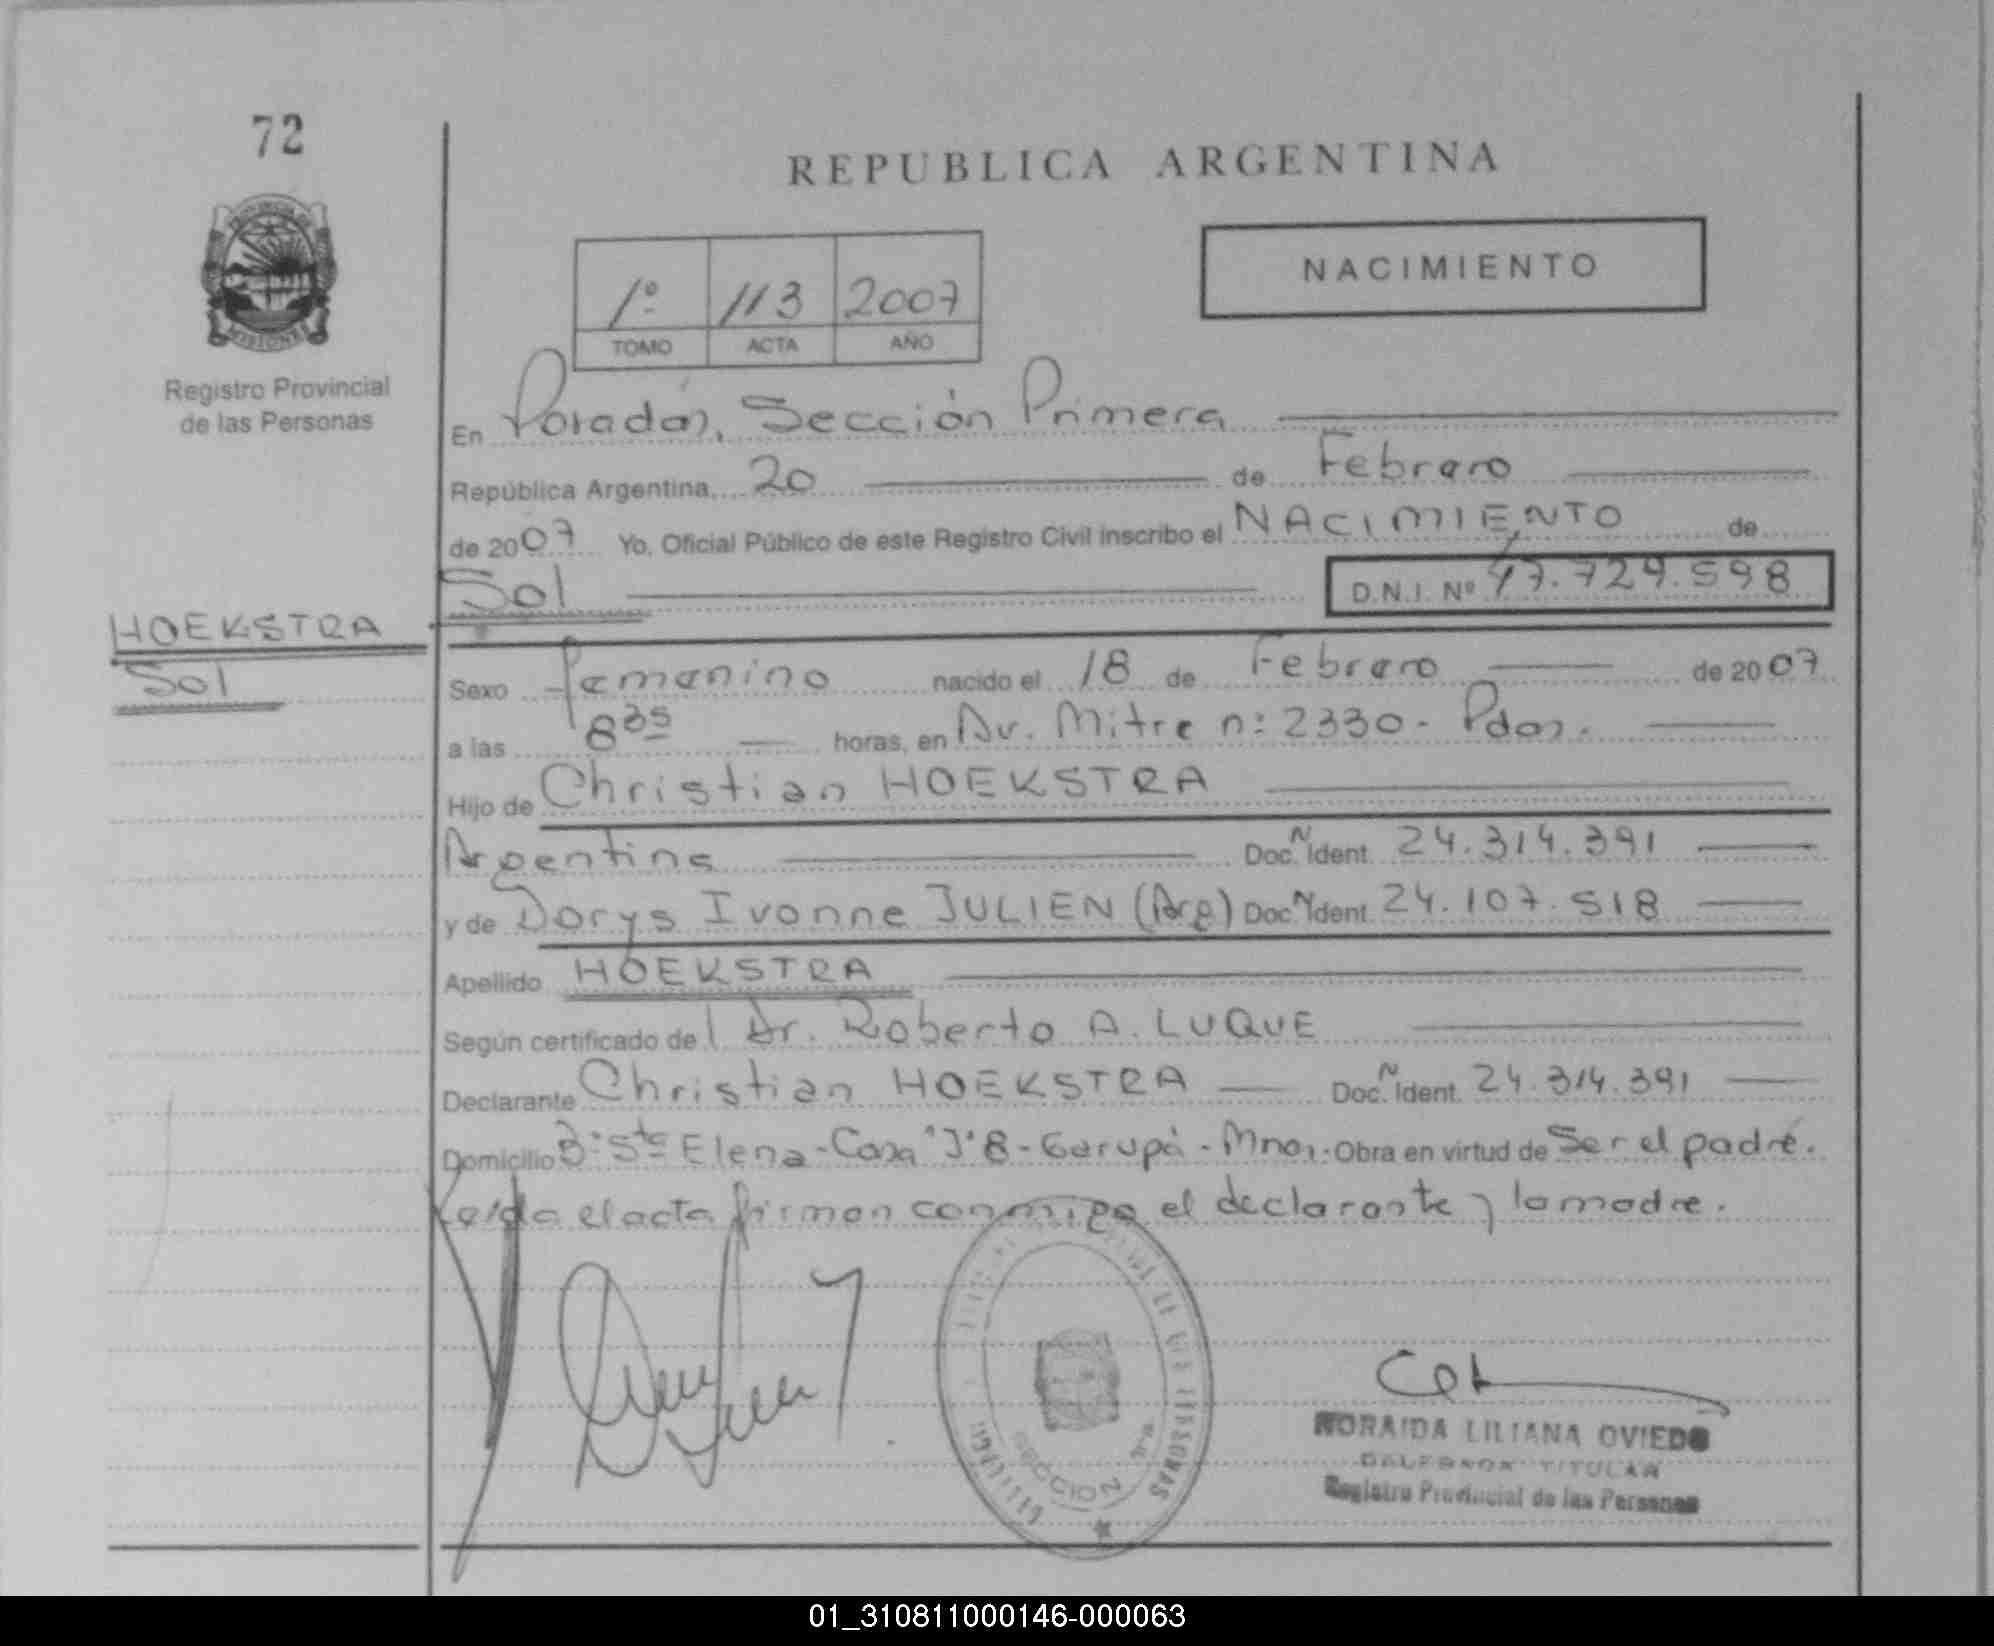 72
REPUBLICA ARGENTINA
NACIMIENTO
1º 113 2007
TOMO ACTA AÑO
PROVINCIA DE
MISIONES
Registro Provincial
de las Personas
En Posadas, Sección Primera
República Argentina, 20 de Febrero
de 2007 Yo, Oficial Público de este Registro Civil inscribo el NACIMIENTO de
Sol D.N.I. Nº 47.729.598
HOEKSTRA
Sol
Sexo femenino nacido el 18 de Febrero de 2007
a las 8 35 horas, en Av. Mitre n: 2330 - Pdas.
Hijo de Christian HOEKSTRA
Argentina Doc. N Ident. 24.314.391
y de Dorys Ivonne JULIEN (Arg) Doc. N Ident. 24.107.518
Apellido HOEKSTRA
Según certificado de l Dr. Roberto A. LUQUE
Declarante Christian HOEKSTRA Doc. N Ident. 24.314.391
Domicilio B: Sta Elena - Casa "J" 8 - Garupá - Mnes. Obra en virtud de Ser el padre.
Leída el acta firman conmigo el declarante y la madre.
DE LAS PERSONAS
SECCION 1ra
NORAIDA LILIANA OVIEDO
TITULAR
Registro Provincial de las Personas
01_310811000146-000063